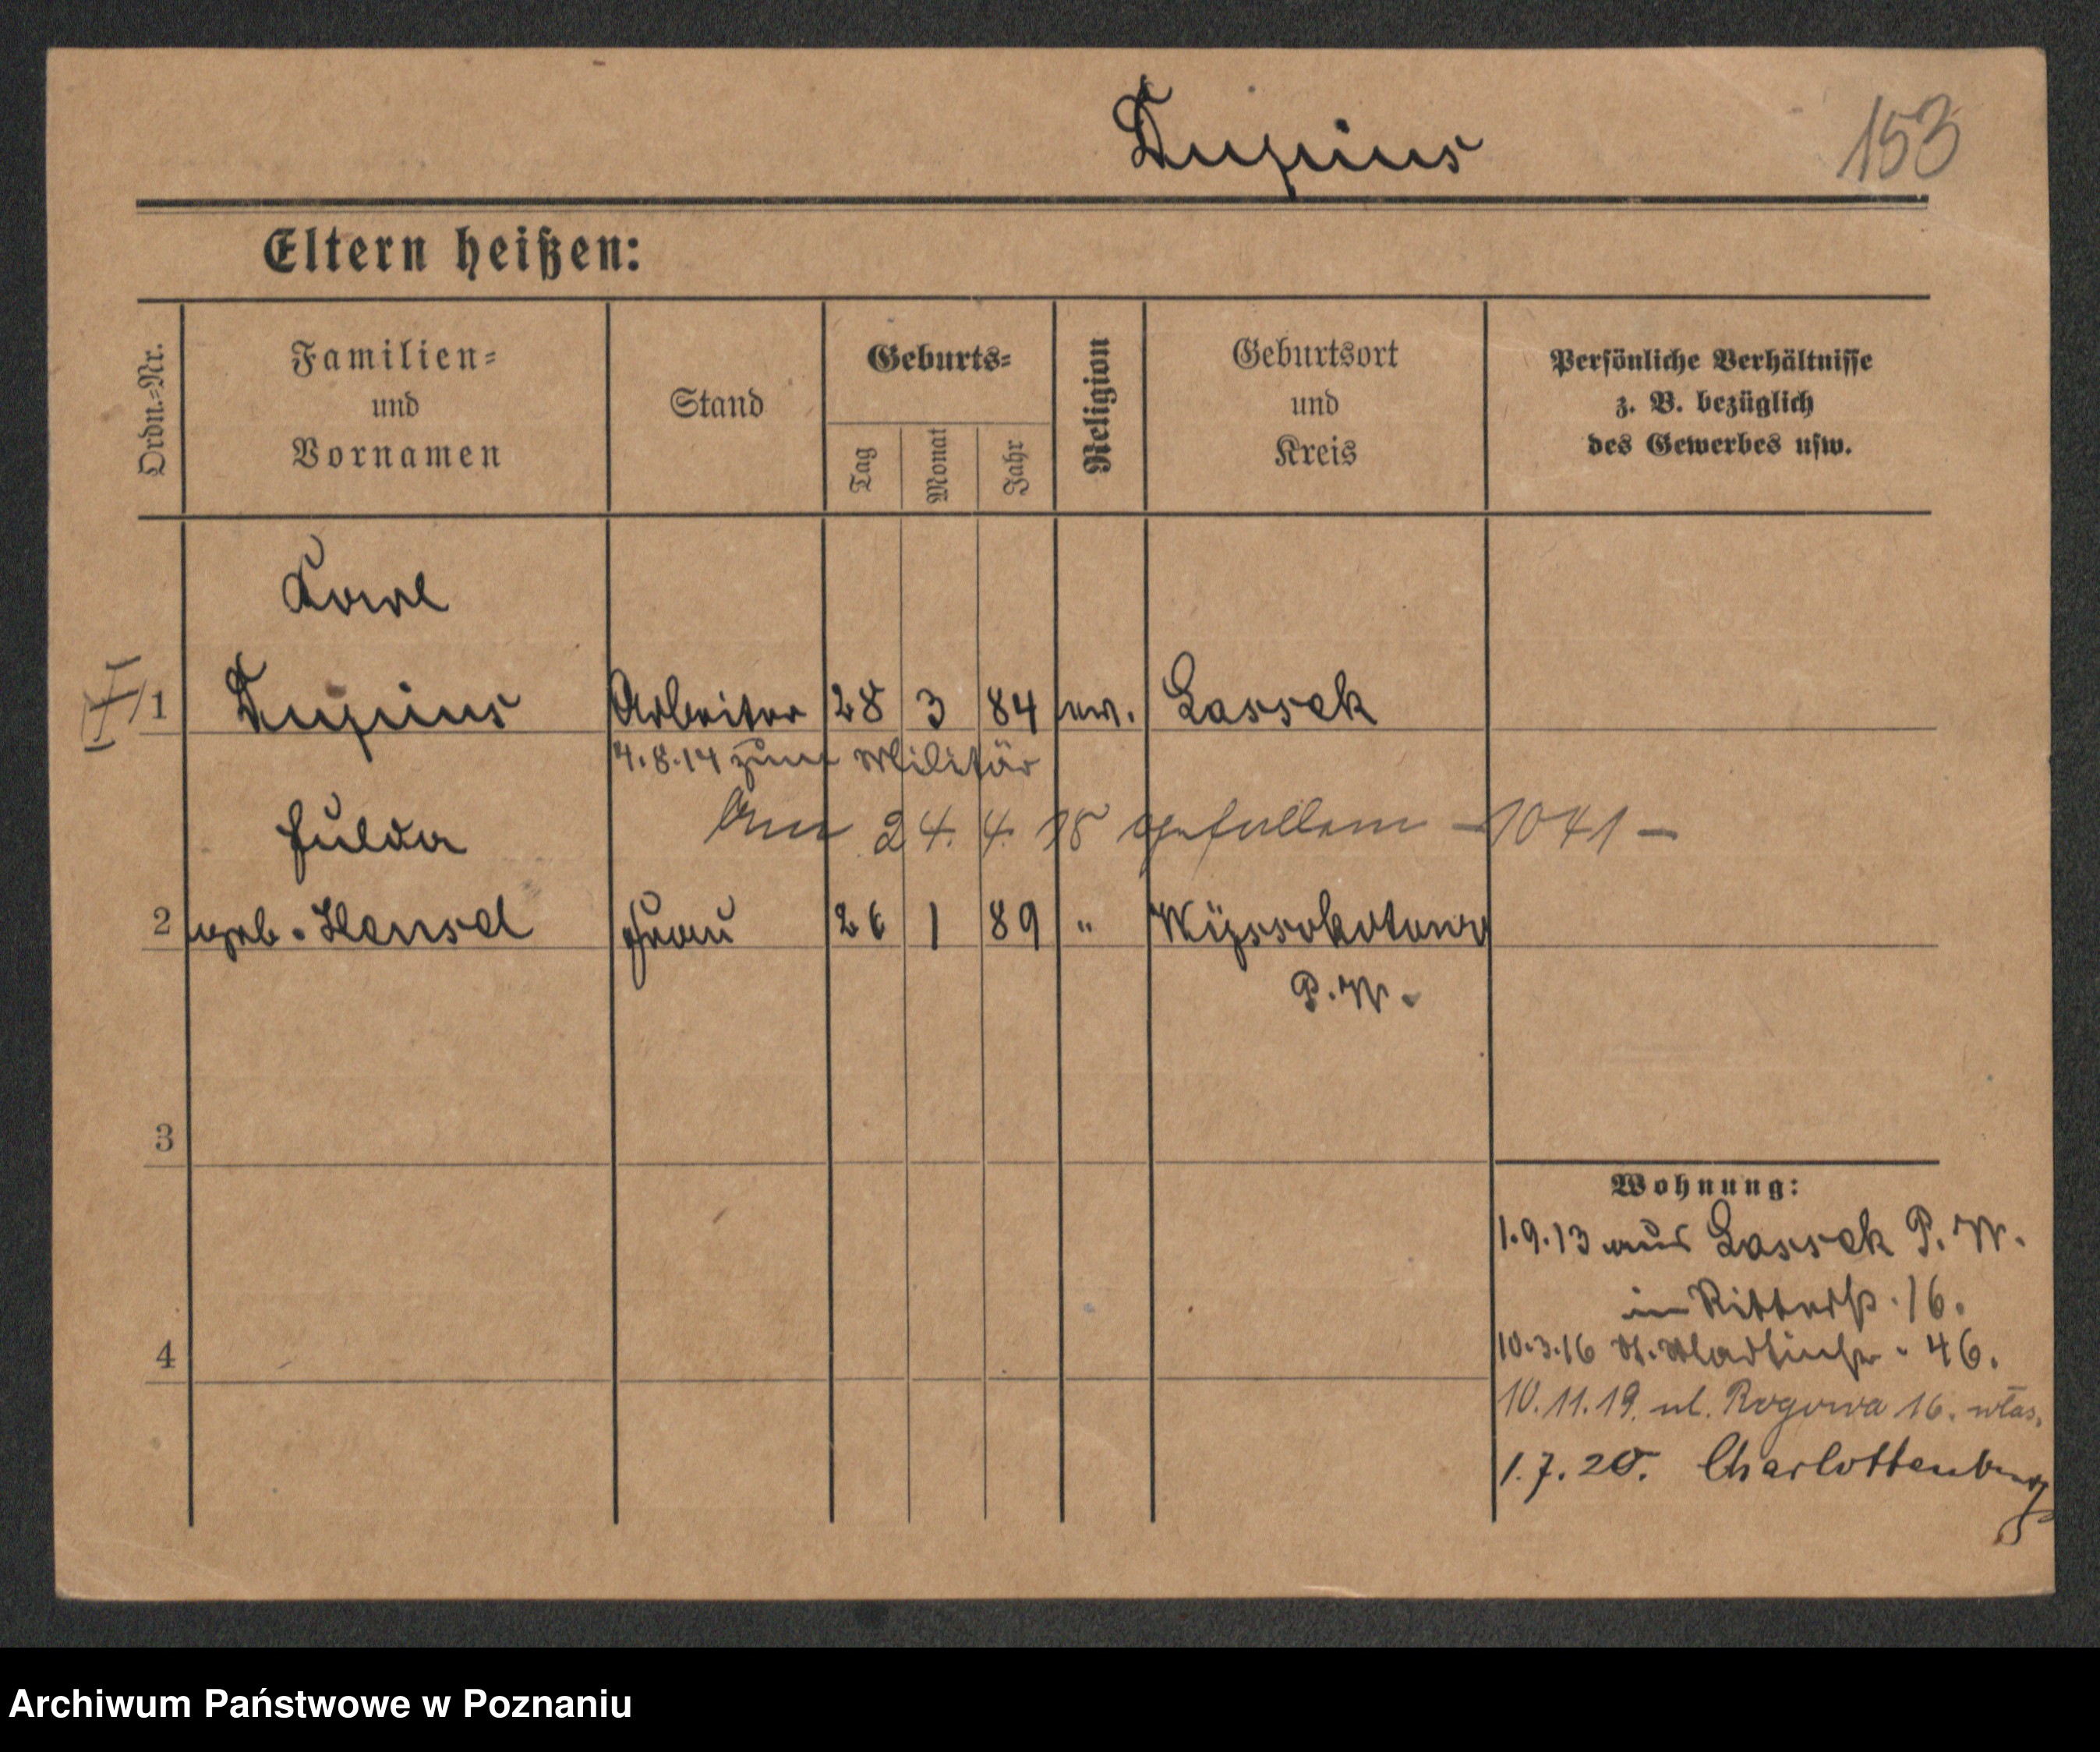 Dupius
153
Eltern heißen:
Ordn.-Nr.
Familien-
und
Vornamen
Stand
Geburts-
Tag
Monat
Jahr
Religion
Geburtsort
und
Kreis
Persönliche Verhältnisse
z. B. bezüglich
des Gewerbes usw.
Karl
1 Dupius Arbeiter 28 3 84 ev. Lassek
4.8.14 zum Militär
Am 24. 4. 18 gefallen -1041-
Hulda
2 geb. Hensel Frau 26 1 89 " Wyssokotowo
P.W.
3
4
Wohnung:
1.9.13 aus Lassek P. W.
in Ritterstr. 16.
10.3.16 St. Martinstr. 46.
10.11.19. ul. Rogowa 16. włas.
1.7.20. Charlottenburg
Archiwum Państwowe w Poznaniu